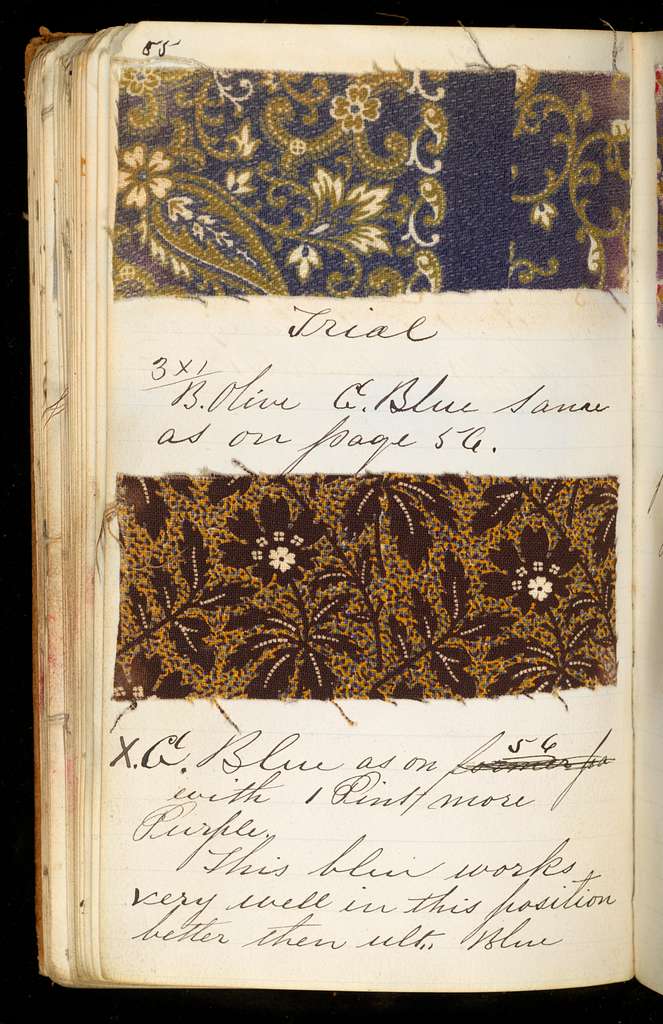 55
Trial
3x1
B. Olive C. Blue same
as on page 56.
X. C. Blue as on 56
with 1 Pint more
Purple.
This blue works
very well in this position
better then ult. Blue